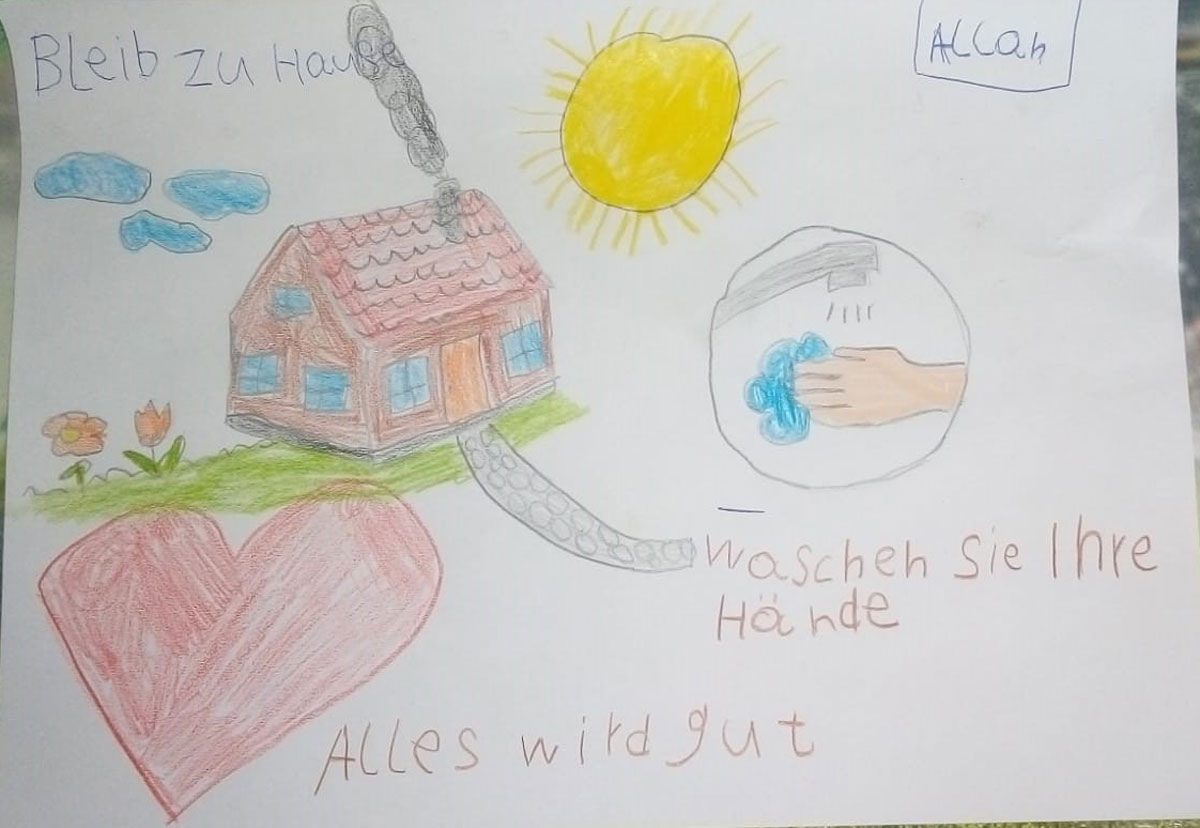 Bleib zu Hause
Allah
Waschen Sie Ihre
Hände
Alles wird gut